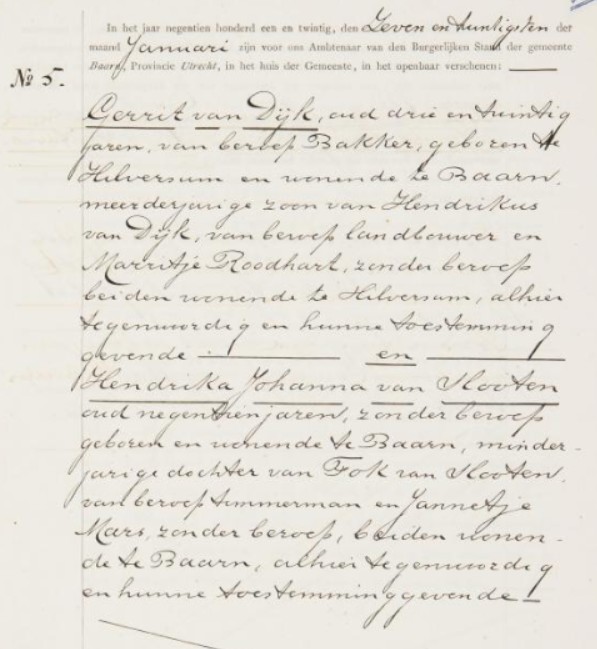 In het jaar negentien honderd een en twintig, den Zeven en twintigsten der
maand Januari zijn voor ons Ambtenaar van den Burgerlijken Stand der gemeente
Baarn, Provincie Utrecht, in het huis der Gemeente, in het openbaar verschenen:
No 5.
Gerrit van Dijk, oud drie en twintig
jaren, van beroep Bakker, geboren te
Hilversum en wonende te Baarn,
meerderjarige zoon van Hendrikus
van Dijk, van beroep landbouwer en
Marritje Roodhart, zonder beroep
beiden wonende te Hilversum, alhier
tegenwoordig en hunne toestemming
gevende en
Hendrika Johanna van Slooten
oud negentien jaren, zonder beroep
geboren en wonende te Baarn, minder-
jarige dochter van Fok van Slooten,
van beroep timmerman en Jannetje
Mars, zonder beroep, beiden wonen-
de te Baarn, alhier tegenwoordig
en hunne toestemming gevende